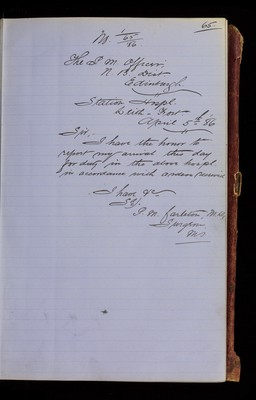 65.
No. 1/65/86
The P. M. Officer,
N. B. Dist
Edinburgh
Station Hospl.
Leith Fort
April 5th 86
Sir,
I have the honor to
report my arrival this day
for duty in the above hospl
in accordance with orders received
I have &c
Sd/
P. M. Carleton, M.D.
Surgeon
M.S.